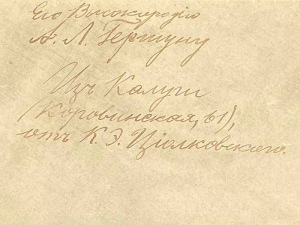 Его Высокородію
А. Л. Гершуну
Изъ Калуги
(Коровинская, 61),
отъ К. Э. Ціолковскаго.